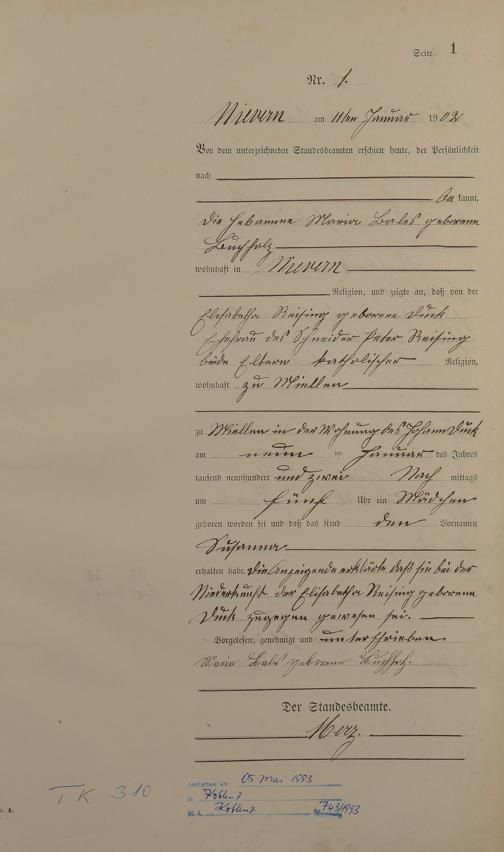 Seite 1
Nr. 1.
Nievern am 11ten Januar 1902
Vor dem unterzeichneten Standesbeamten erschien heute, der Persönlichkeit
nach
be kannt,
die Hebamme Maria Bales geborene
Buchholz
wohnhaft in Nievern
Religion, und zeigte an, daß von der
Elisabetha Reising geborene Duck
Ehefrau des Schneider Peter Reising
beide Eltern katholischer Religion,
wohnhaft zu Miellen
zu Miellen in der Wohnung des Johann Duck
am neun ten Januar des Jahres
tausend neunhundert und zwei Nach mittags
um fünf Uhr ein Mädchen
geboren worden sei und daß das Kind den Vornamen
Susanna
erhalten habe. Die Anzeigende erklärte daß sie bei der
Niederkunft der Elisabetha Reising geborene
Duck zugegen gewesen sei.
Vorgelesen, genehmigt und unterschrieben
Maria Bals geborene Buchholz.
Der Standesbeamte.
Merz.
TK 310
gestorben am: 05 Mai 1993
in Koblenz
St. A. Koblenz 743/1993
c. A.